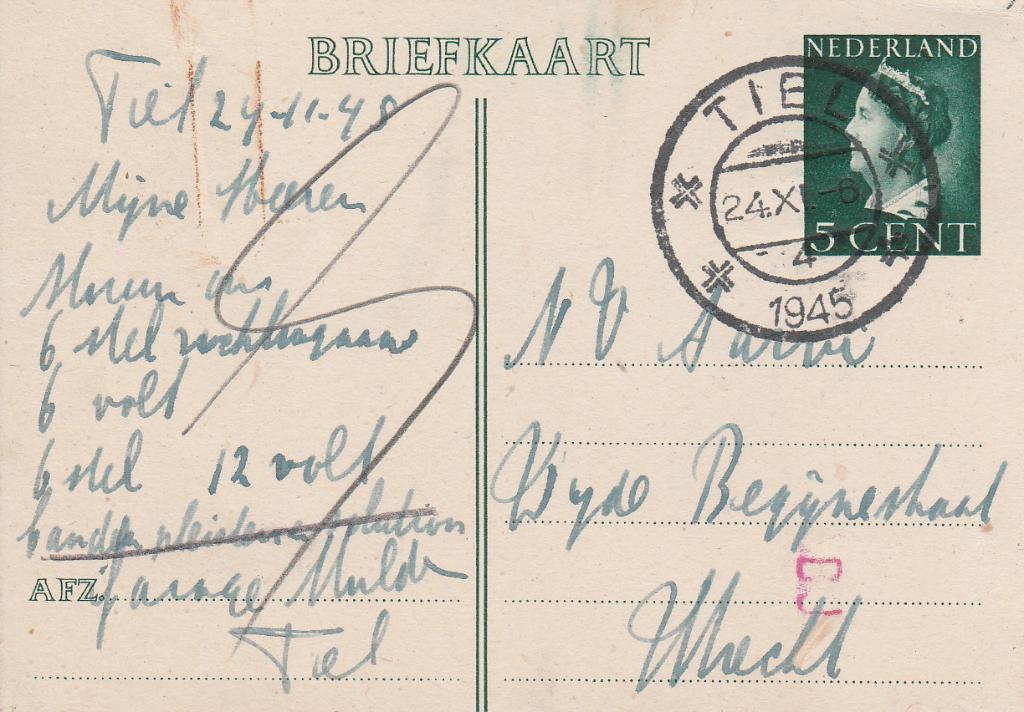 BRIEFKAART
Tiel 24-11-45
Mijne Heeren
6 stel
6 volt
6 stel 12 volt
AFZ. Garage Mulder
Tiel
NEDERLAND
5 CENT
TIEL
24.XI.-6
4
1945
N V
Wyde Begijnestraat
Utrecht